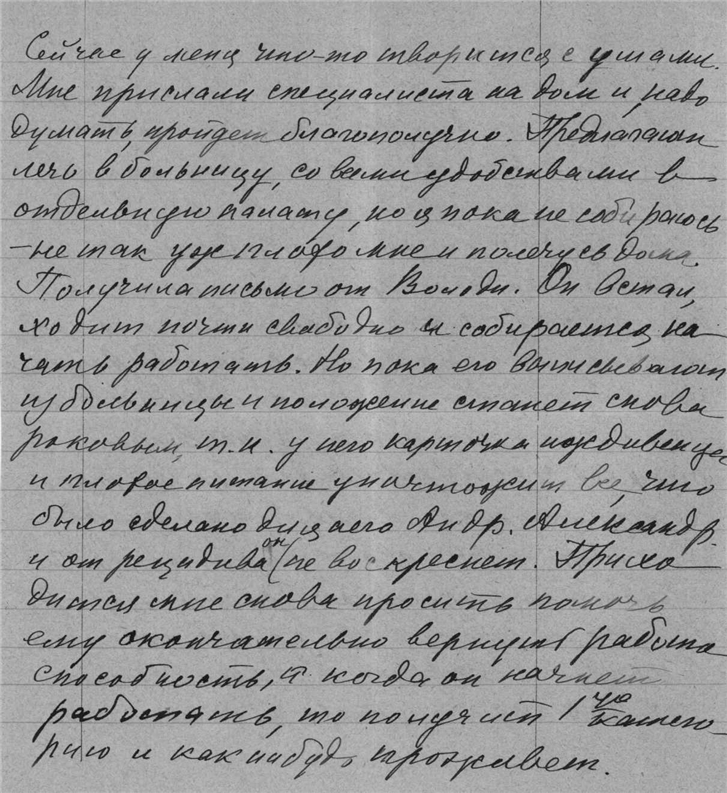 Сейчас у меня что-то творится с ушами.
Мне прислали специалиста на дом и, надо
думать, пройдет благополучно. Предлагают
лечь в больницу, со всеми удобствами в
отдельную палату, но я пока не собираюсь
– не так уж плохо мне и полечусь дома.
Получила письмо от Володи. Он встал,
ходит почти свободно и собирается на
чать работать. Но пока его выписывают
из больницы и положение станет снова
роковым, т.к. у него карточка иждивенца
и плохое питание уничтожит все, что
было сделано для него Андр. Александр.
и от рецидива он не воскреснет. Прихо
дится мне снова просить помочь
ему окончательно вернуть работо
способность, а когда он начнет
работать, то получит 1ую катего-
рию и как нибудь проживет.